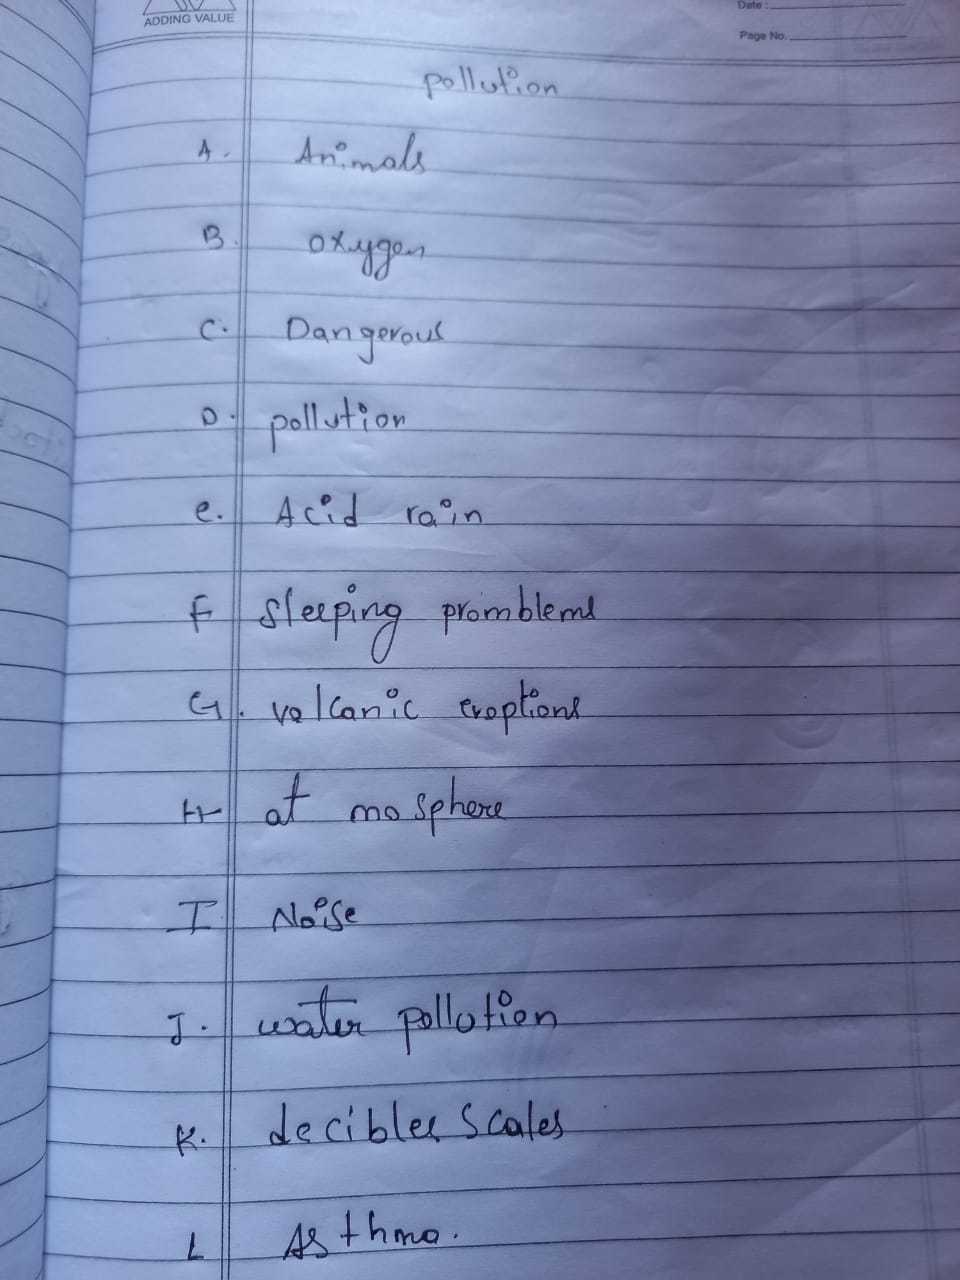 ADDING VALUE
Date :
Page No.
pollution
A. Animals
B. oxygen
C. Dangerous
D. pollution
e. Acid rain
F sleeping promblems
G. volcanic eroptions
H at mosphere
I Noise
J. water pollution
K. decibles scales
L Asthma.